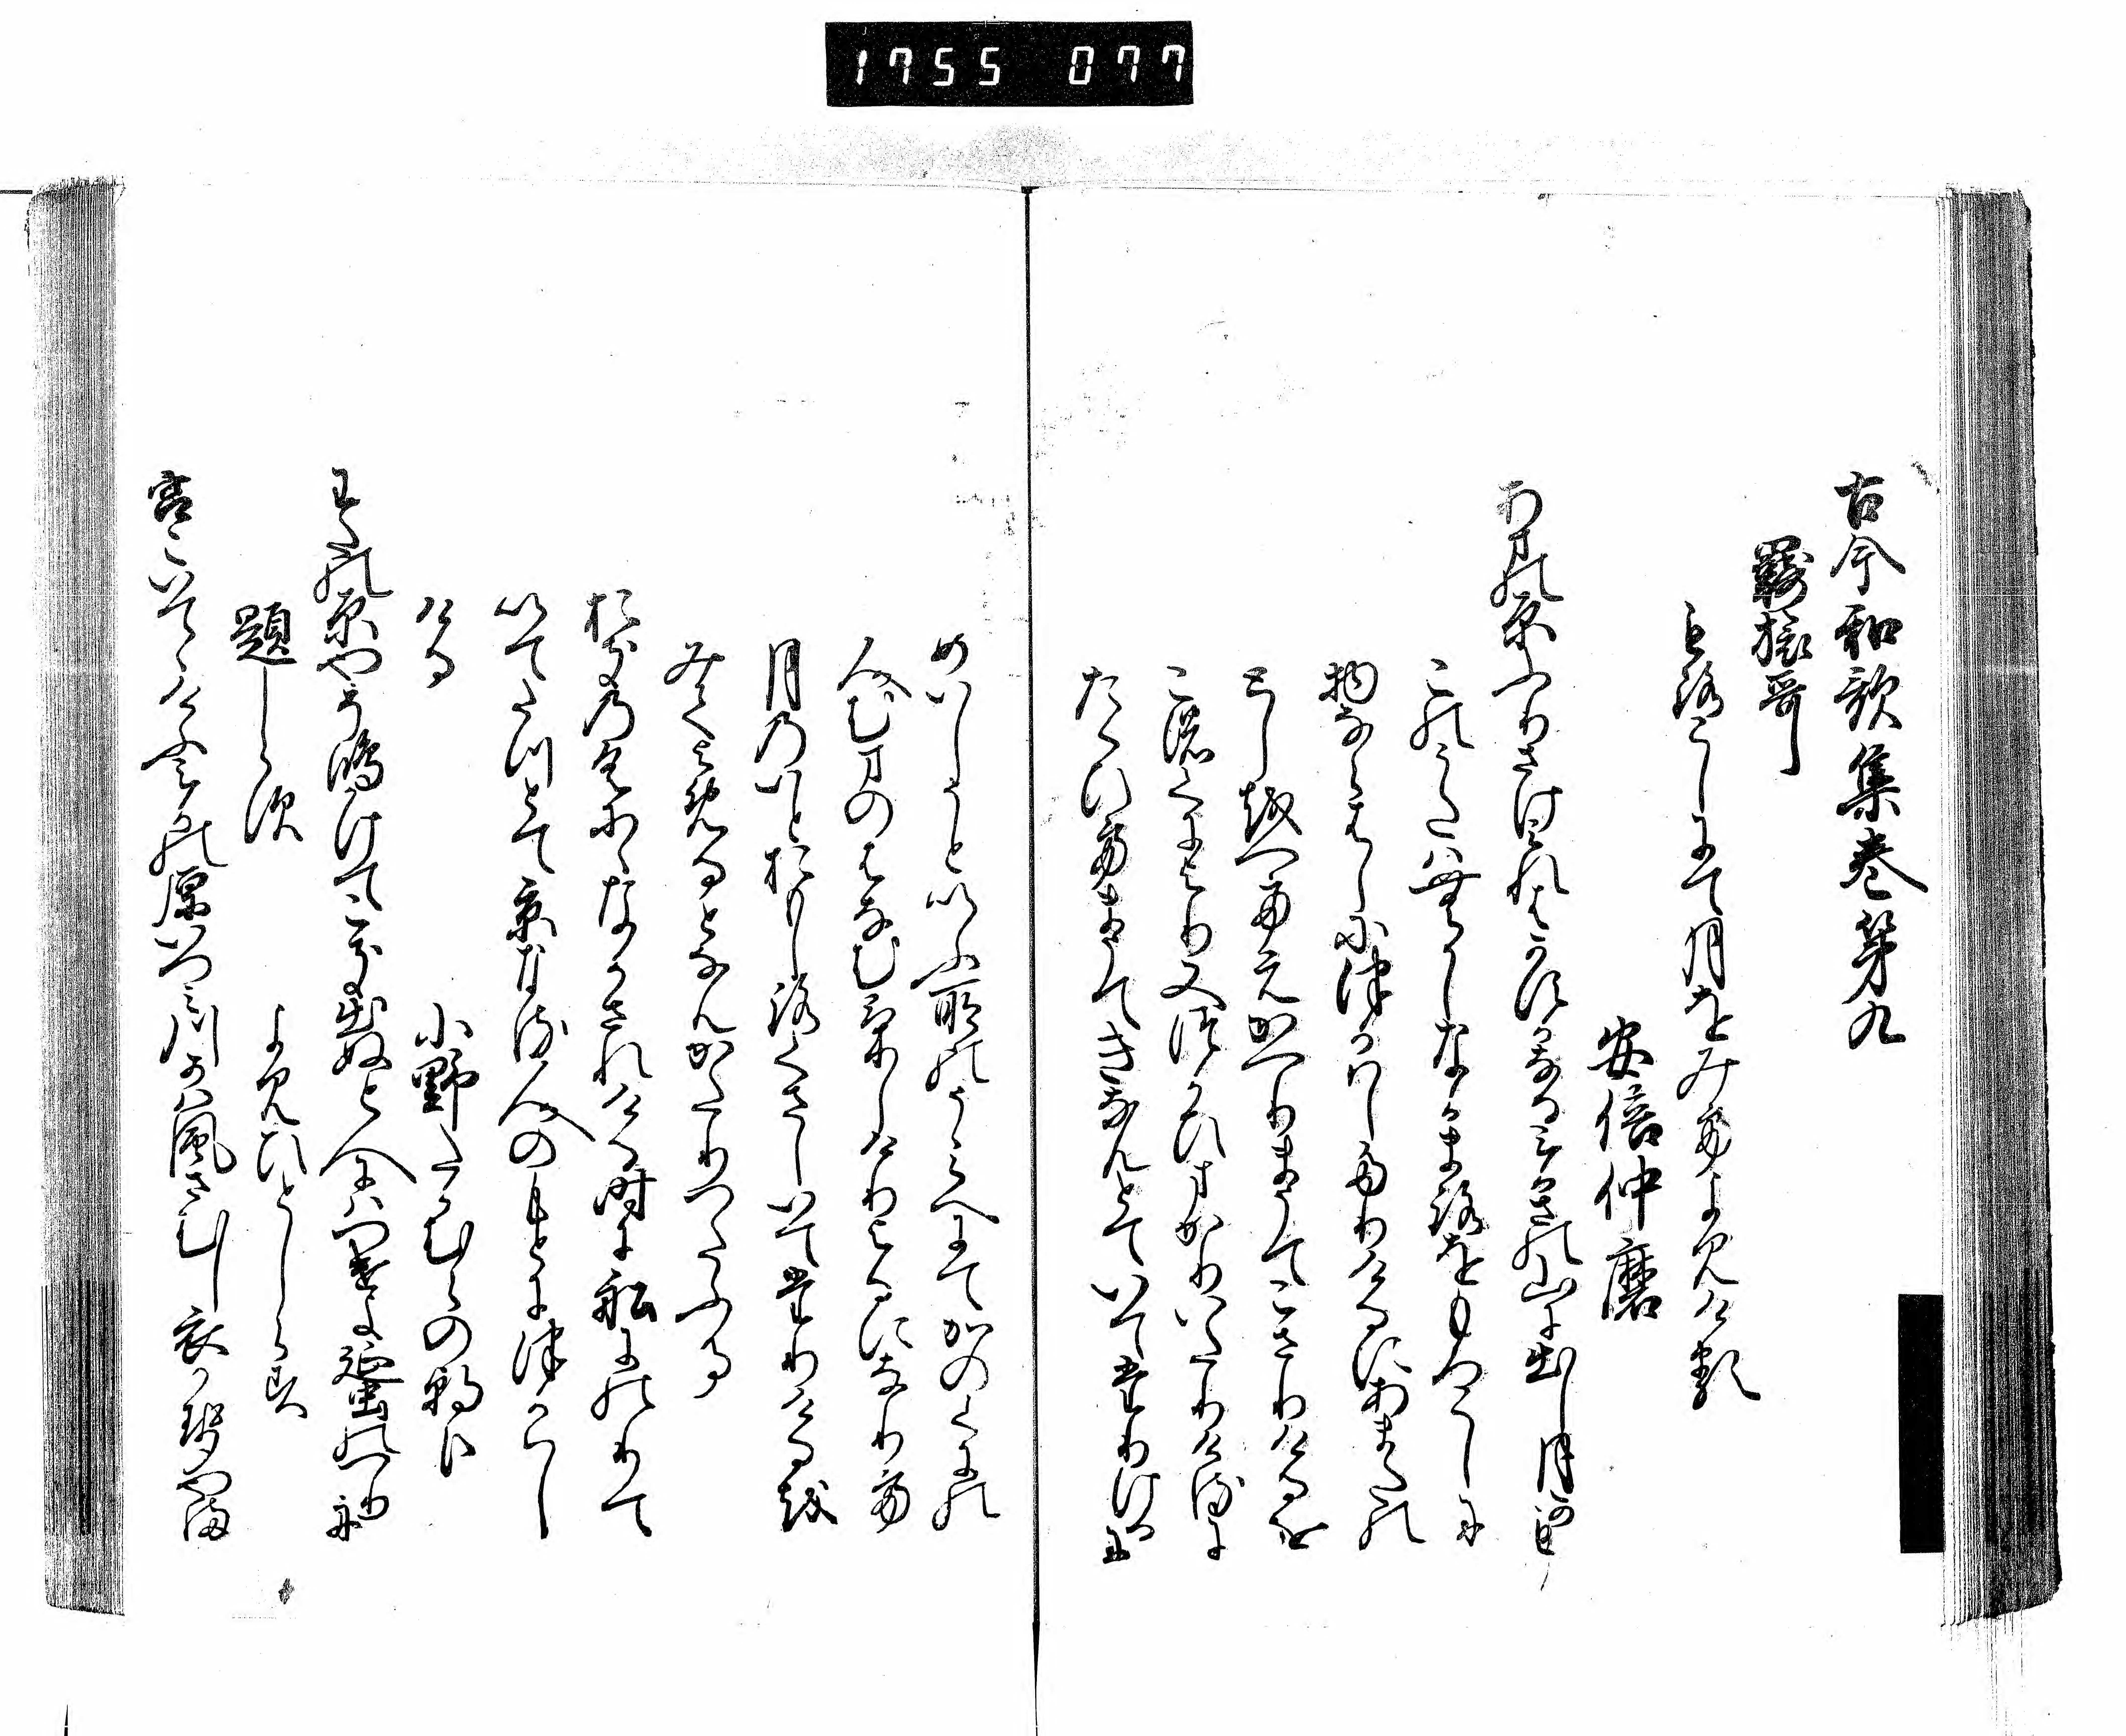 1755 077
古今和歌集巻第九
羇旅哥
もろこしにて月をみてよみける
安倍仲麿
あまの原ふりさけみれはかすかなるみかさの山に出し月かも
このうたは昔なかまろをもろこしに
物ならはしにつかはしたりけるにあまたの
とし越へてえかへりまうてこさりけるを
この國より又つかひまかりいたりけるに
たくひてまうてきなんとていてたりけるに
めいしうといふ所のうみへにてかのくにの
人むまのはなむけしけりよるになりて
月のいとおもしろくさしいてたりける越
みてよめるとなんかたりつたふる
おきの國になかされける時に船にのりて
いてたつとて京なる人のもとにつかはし
ける
小野たかむらの朝臣
わたの原やそ嶋かけてこき出ぬと人にはつけよ海士のつり舟
題しらす
よみ人しらす
宮こいてゝけふみかの原いつみ川かは風さむし衣かせ山